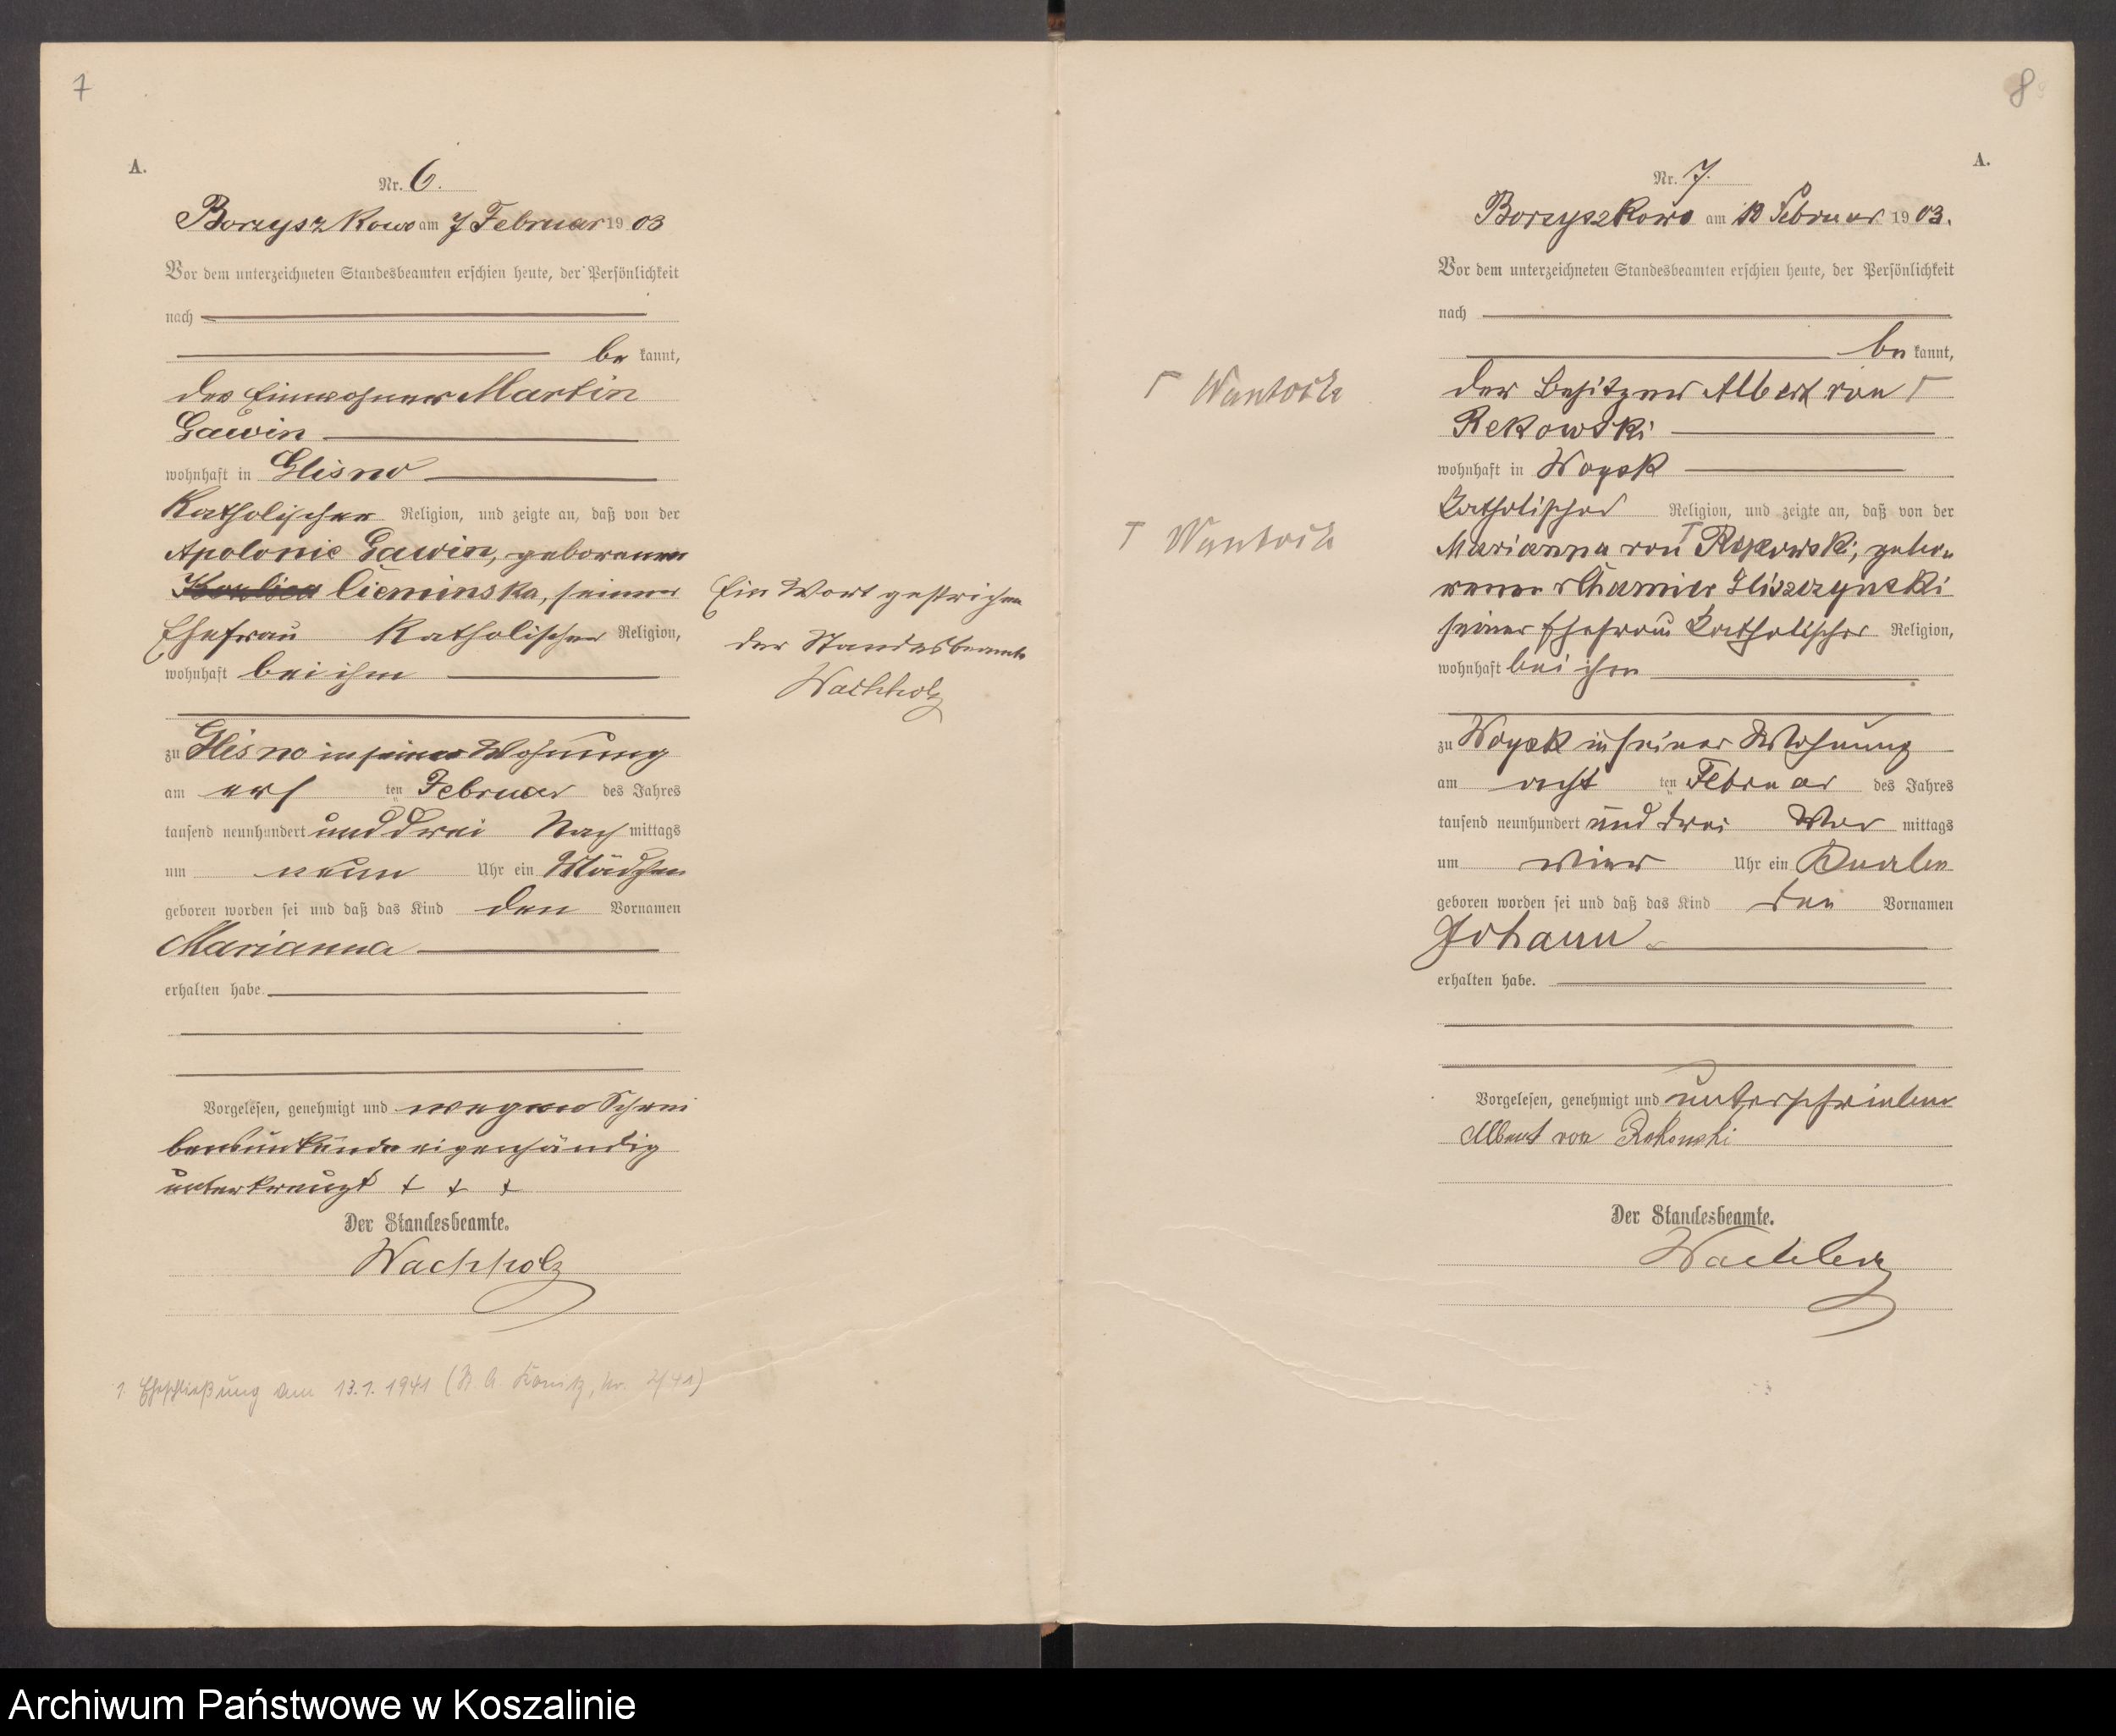 7
A.
Nr. 6.
Borzyszkowo am 7 Februar 19 03
Vor dem unterzeichneten Standesbeamten erschien heute, der Persönlichkeit
nach
be kannt,
der Einwohner Martin
Gawin
wohnhaft in Glisno
Katholischer Religion, und zeigte an, daß von der
Apolonie Gawin, geborenen
Cieminska, seiner
Ehefrau Katholischer Religion,
wohnhaft bei ihm
zu Glisno in seiner Wohnung
am ten Februar des Jahres
tausend neunhundert und drei Nach mittags
um neun Uhr ein Mädchen
geboren worden sei und daß das Kind den Vornamen
Marianna
erhalten habe.
Vorgelesen, genehmigt und wegen Schrei
bensunkunde eigenhändig
unterkreuzt + + +
Der Standesbeamte.
Wachholz
Ein Wort gestrichen
der Standesbeamte
Wachholz
1. Eheschließung am 13.1.1941 (St. A. Konitz, Nr. 2/41)
8
A.
Nr. 7.
Borzyszkowo am Februar 19 03.
Vor dem unterzeichneten Standesbeamten erschien heute, der Persönlichkeit
nach
be kannt,
der Besitzer Albert von ┌
Rekowski
wohnhaft in Woysk
Katholischer Religion, und zeigte an, daß von der
Marianna von ┬ Rekowski, gebo
renen Chamier Gliszczynski
seiner Ehefrau Katholischer Religion,
wohnhaft bei ihm
zu Woysk in seiner Wohnung
am acht ten Februar des Jahres
tausend neunhundert und drei Vor mittags
um vier Uhr ein Knabe
geboren worden sei und daß das Kind den Vornamen
Johann
erhalten habe.
Vorgelesen, genehmigt und unterschrieben
Albert von Rekowski
Der Standesbeamte.
Wachholz
┌ Wantoch
┬ Wantoch
Archiwum Państwowe w Koszalinie